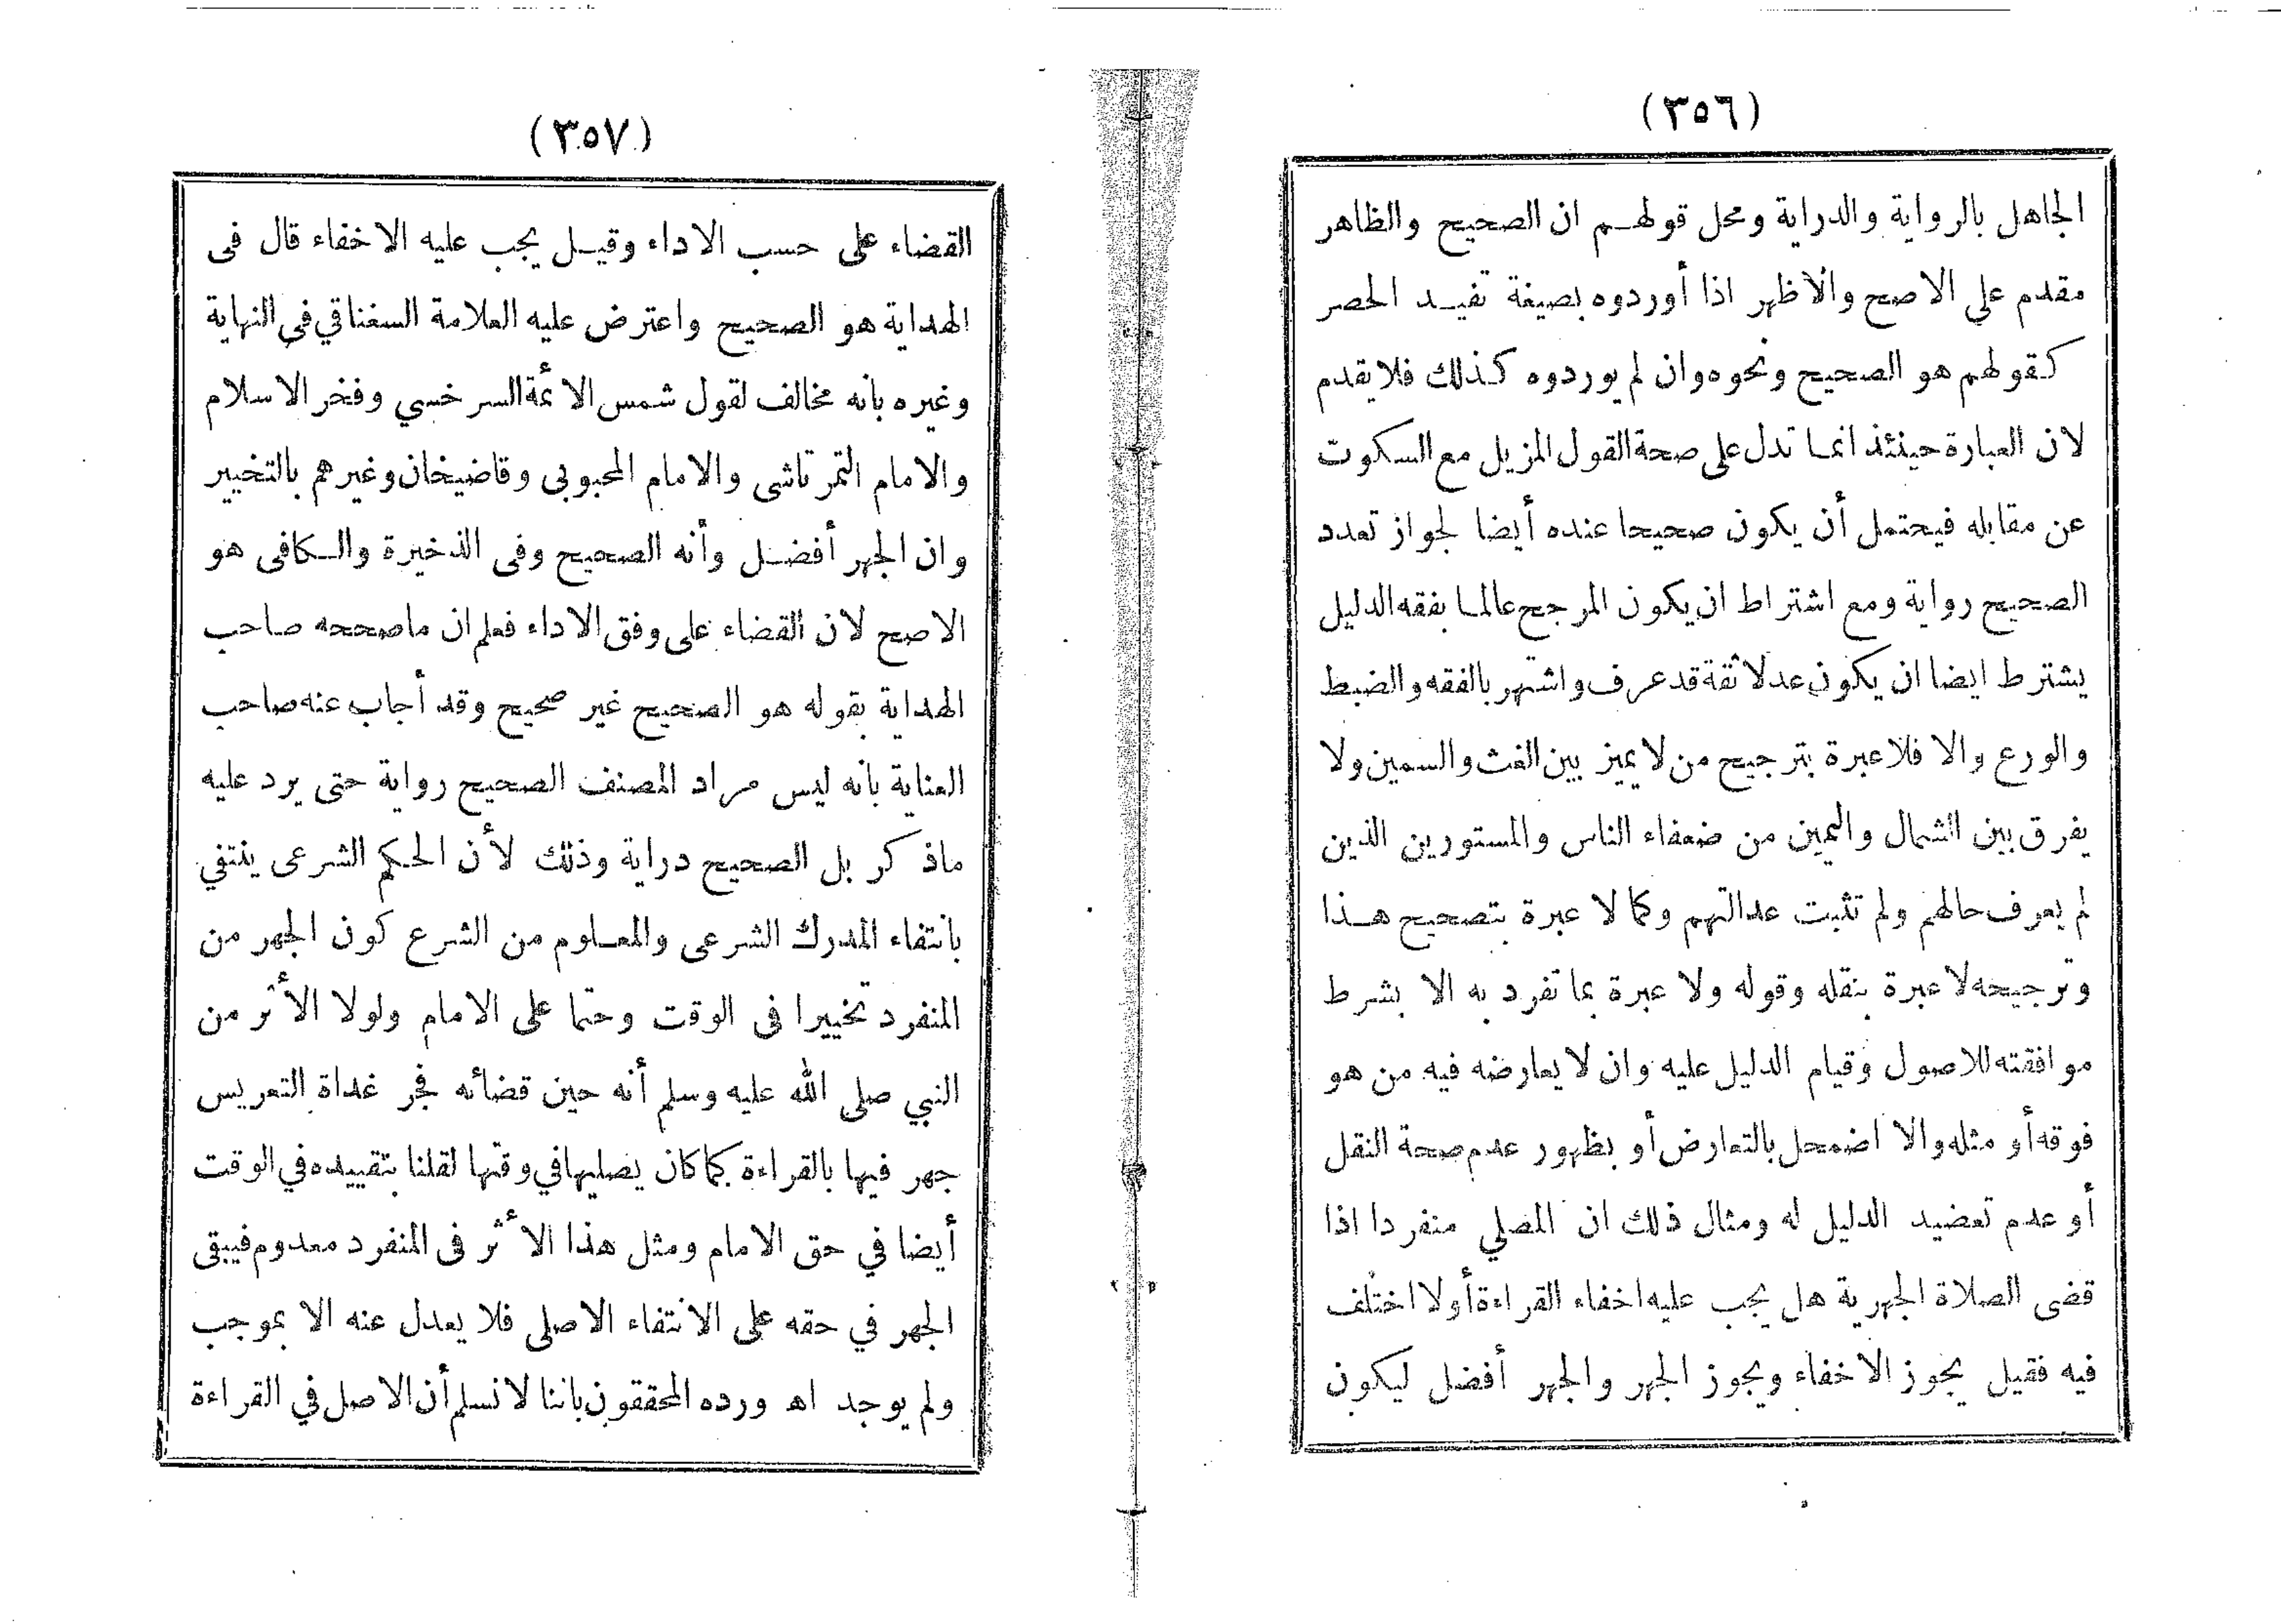 (٣٥٦)
الجاهل بالرواية والدراية ومحل قولهم ان الصحيح والظاهر
مقدم على الاصح والاظهر اذا أوردوه بصيغة تفيد الحصر
كقولهم هو الصحيح ونحوه وان لم يوردوه كذلك فلا يقدم
لان العبارة حينئذ انما تدل على صحة القول المزيل مع السكوت
عن مقابله فيحتمل أن يكون صحيحا عنده أيضا لجواز تعدد
الصحيح رواية ومع اشتراط ان يكون المرجح عالما بفقه الدليل
يشترط ايضا ان يكون عدلا ثقة قد عرف واشتهر بالفقه والضبط
والورع والا فلا عبرة بترجيح من لا يميز بين الغث والسمين ولا
يفرق بين الشمال واليمين من ضعفاء الناس والمستورين الذين
لم يعرف حالهم ولم تثبت عدالتهم وكما لا عبرة بتصحيح هذا
وترجيحه لا عبرة بنقله وقوله ولا عبرة بما تفرد به الا بشرط
موافقته للاصول وقيام الدليل عليه وان لا يعارضه فيه من هو
فوقه أو مثله والا اضمحل بالتعارض أو بظهور عدم صحة النقل
أو عدم تعضيد الدليل له ومثال ذلك ان المصلي منفردا اذا
قضى الصلاة الجهرية هل يجب عليه اخفاء القراءة أولا اختلف
فيه فقيل يجوز الاخفاء ويجوز الجهر والجهر أفضل ليكون
(٣٥٧)
القضاء على حسب الاداء وقيل يجب عليه الاخفاء قال فى
الهداية هو الصحيح واعترض عليه العلامة السغناقي فى النهاية
وغيره بانه مخالف لقول شمس الائمة السرخسي وفخر الاسلام
والامام التمرتاشى والامام المحبوبى وقاضيخان وغيرهم بالتخيير
وان الجهر أفضل وأنه الصحيح وفى الذخيرة والكافى هو
الاصح لان القضاء على وفق الاداء فعلم ان ماصححه صاحب
الهداية بقوله هو الصحيح غير صحيح وقد أجاب عنه صاحب
العناية بانه ليس مراد المصنف الصحيح رواية حتى يرد عليه
ماذكر بل الصحيح دراية وذلك لأن الحكم الشرعى ينتفي
بانتفاء المدرك الشرعى والمعلوم من الشرع كون الجهر من
المنفرد تخييرا فى الوقت وحتما على الامام ولولا الأثر من
النبي صلى الله عليه وسلم أنه حين قضائه فجر غداة التعريس
جهر فيها بالقراءة كما كان يصليها في وقتها لقلنا بتقييده في الوقت
أيضا في حق الامام ومثل هذا الأثر فى المنفرد معدوم فيبقى
الجهر في حقه على الانتفاء الاصلى فلا يعدل عنه الا بموجب
ولم يوجد اه ورده المحققون باننا لا نسلم أن الاصل في القراءة